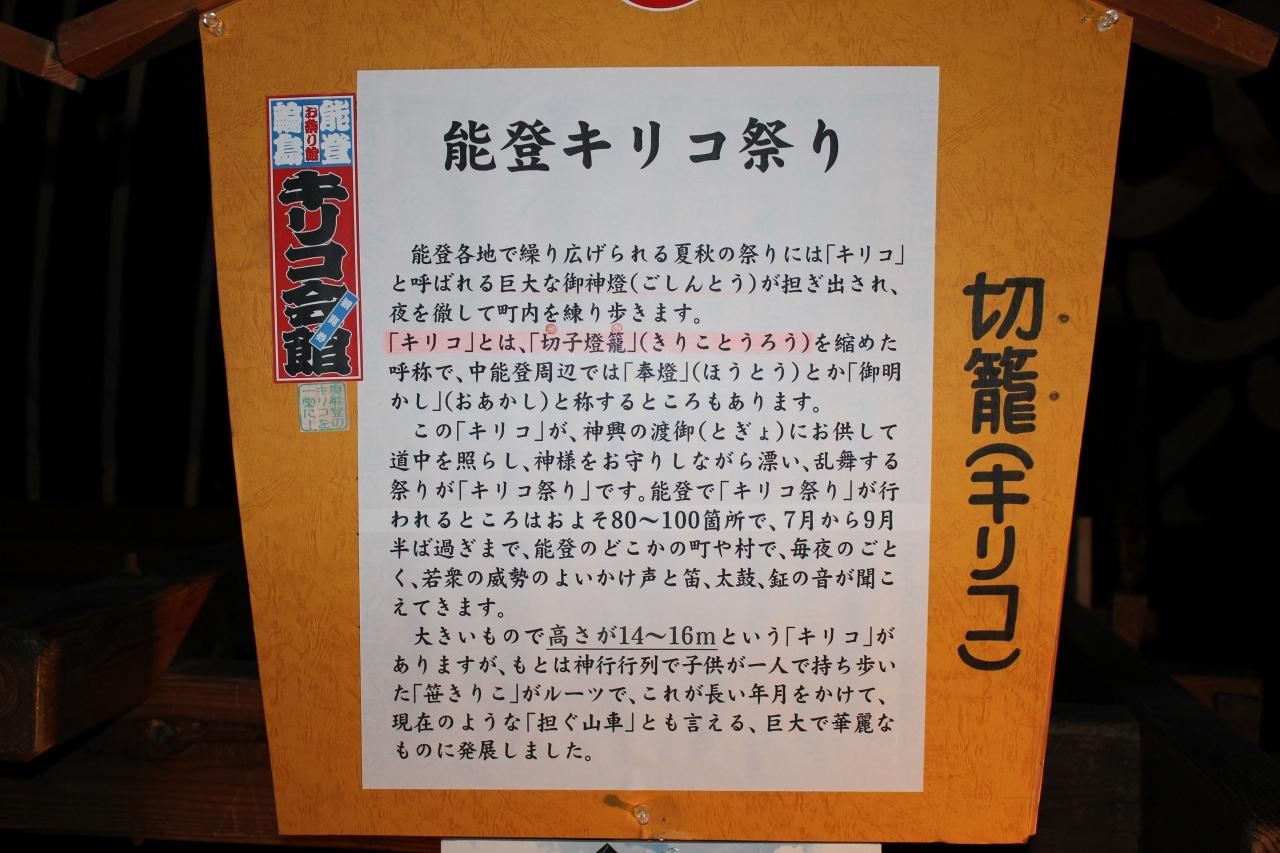 能登キリコ祭り
能登各地で繰り広げられる夏秋の祭りには「キリコ」
と呼ばれる巨大な御神燈(ごしんとう)が担ぎ出され、
夜を徹して町内を練り歩きます。
「キリコ」とは、「切子燈籠」(きりことうろう)を縮めた
呼称で、中能登周辺では「奉燈」(ほうとう)とか「御明
かし」(おあかし)と称するところもあります。
この「キリコ」が、神興の渡御(とぎょ)にお供して
道中を照らし、神様をお守りしながら漂い、乱舞する
祭りが「キリコ祭り」です。能登で「キリコ祭り」が行
われるところはおよそ80〜100箇所で、7月から9月
半ば過ぎまで、能登のどこかの町や村で、毎夜のごと
く、若衆の威勢のよいかけ声と笛、太鼓、鉦の音が聞こ
えてきます。
大きいもので高さが14〜16mという「キリコ」が
ありますが、もとは神行行列で子供が一人で持ち歩い
た「笹きりこ」がルーツで、これが長い年月をかけて、
現在のような「担ぐ山車」とも言える、巨大で華麗な
ものに発展しました。
切籠(キリコ)
能登
お祭り館
輪島
キリコ会館
奥能登の
キリコを
一堂に!